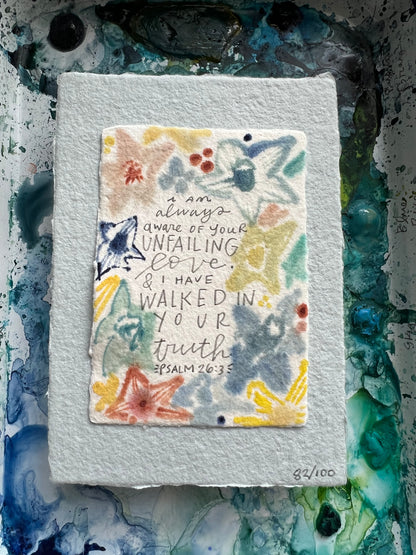 i AM
always
aware of your
UNFAILING
love.
& I HAVE
WALKED IN
YOUR
truth
PSALM 26:3
82/100